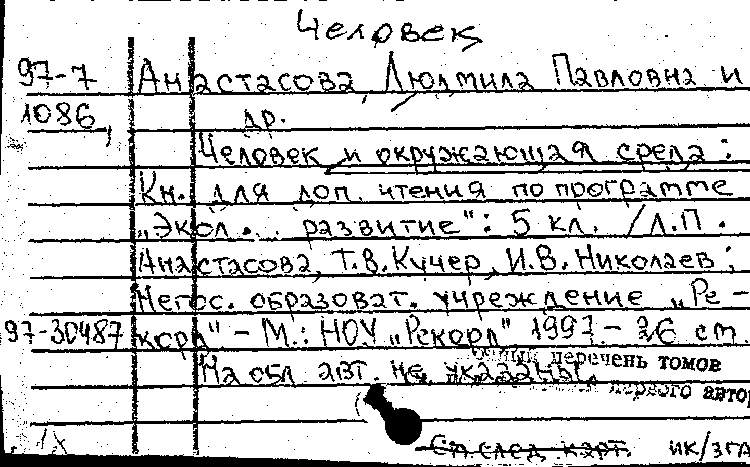 Человек
97-7 Анастасова, Людмила Павловна и
1086, др.
Человек и окружающая среда:
Кн. для доп. чтения по программе
„Экол... развитие": 5 кл. / Л.П.
Анастасова, Т.В. Кучер, И.В. Николаев;
Негос. образоват. учреждение „Ре-
97-30487 корд" - М.: НОУ „Рекорд" 1997. - 36 см.
На обл. авт. не указаны.
перечень томов
первого автор
См. след. карт. ИК/ЗГЛ